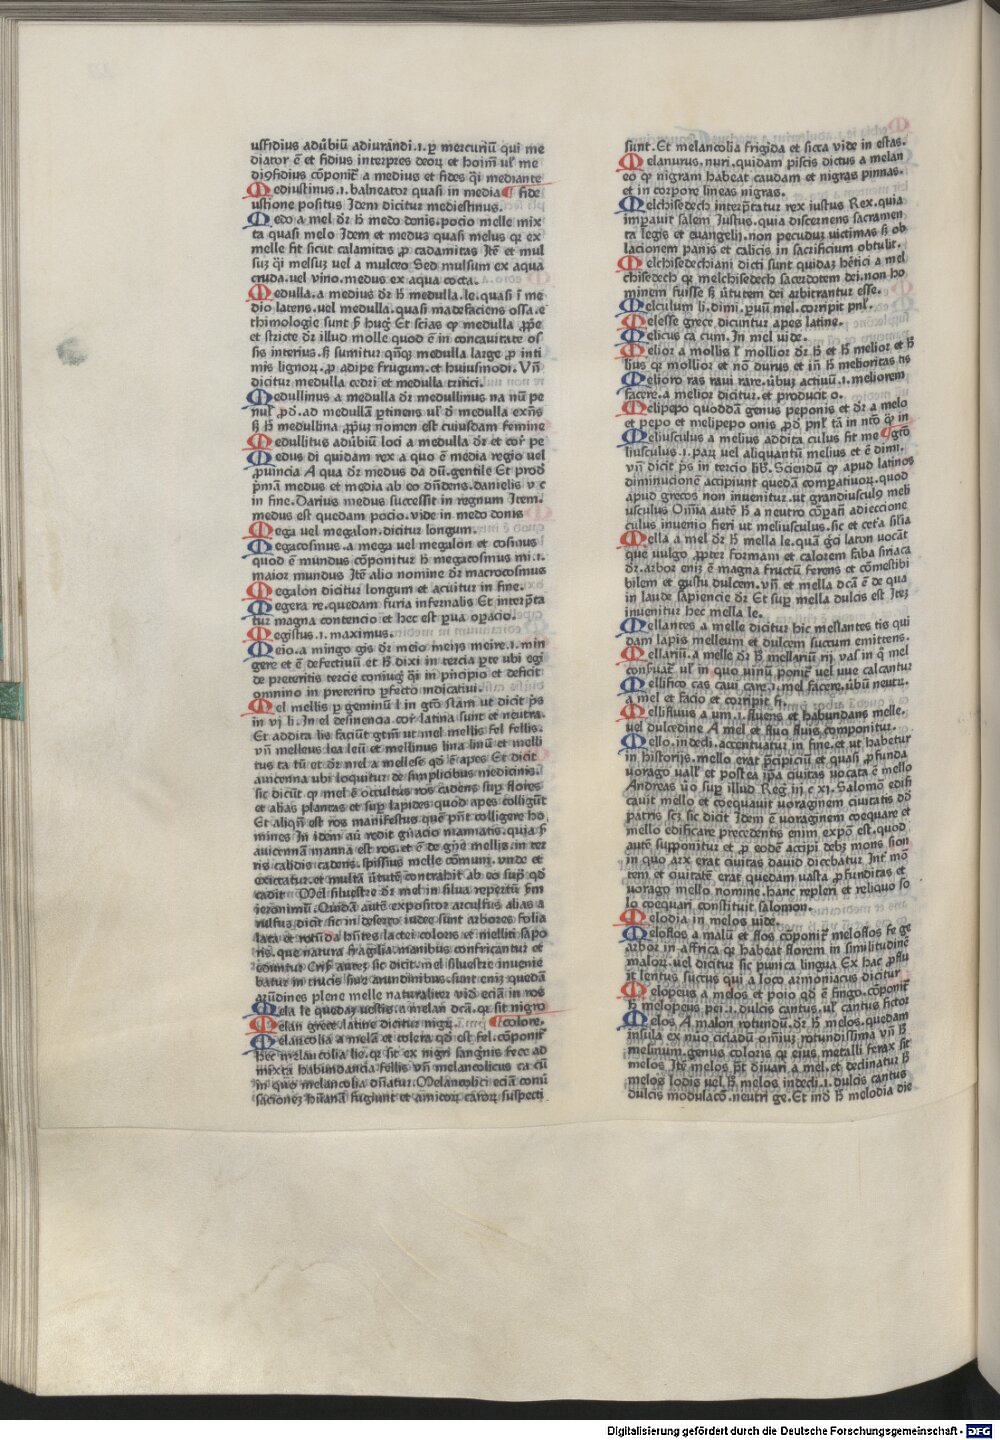 usfidius adūbiū adiurandi.i.ꝑ mercuriū qui me
diator ē et fidius interpres deoꝝ et hoīm ul' me
diosfidius cōponit᷑ a medius et fides q̄i mediante
Mediustinus.i.balneator quasi in media fide
ustione positus Idem dicitur mediestinus.
Medo a mel dr̄ h̄ medo donis.pocio melle mix
ta quasi melo Idem et medus quasi melus qꝛ ex
melle fit sicut calamitas ꝓ cadamitas Itē et mul
suꝫ q̄i melsuꝫ vel a mulceo Sed mulsum ex aqua
cruda.vel vino.medus ex aqua cocta.
Medulla.a medius dr̄ h̄ medulla.le.quasi ī me
dio latens.vel medulla.quasi madefaciens ossa.e
thimologie sunt ẜm hug̅ Et scias ꝙ medulla ꝓpe
et stricte dr̄ illud molle quod ē in concauitate os
sis interius.ẜꝫ sumitur qn̄qꝫ medulla large ꝓ inti
mis lignoꝝ.ꝓ adipe frugum.et huiusmodi.Vn̄
dicitur medulla cedri et medulla tritici.
Medullinus a medulla dr̄ medullinus na nū pe
nul' ꝓd̄.ad medullā ꝑtinens ul' d̄ medulla exn̄s
ẜꝫ h̄ medullina ꝓpriuꝫ nomen est cuiusdam femine
Medullitus adūbiū loci a medulla dr̄ et cor̄ pe
Medus di quidam rex a quo ē media regio vel
ꝓuincia A qua dr̄ medus da dū.gentile Et prod̄
pͥmā medus et media ab eo dn̄dens.danielis v c
in fine.Darius medus successit in regnum Item.
medus est quedam pocio.vide in medo donis
Mega vel megalon.dicitur longum.
Megacosmus.a mega vel megalon et cosmus
quod ē mundus cōponitur h̄ megacosmus mi.i.
maior mundus Itē alio nomine dr̄ macrocosmus
Megalon dicitur longum et acuitur in fine.
Megera re.quedam furia infernalis Et interp̄ta
tur magna contencio et hec est ꝑua oꝑacio.
Megistus.i.maximus.
Meio.a mingo gis dr̄ meio meijs meire.i.min
gere et ē defectiuū et h̄ dixi in tercia ꝑte ubi egi
de preteritis tercie coniug̅ q̄i in pͥncipio et deficit
omnino in preterito ꝑfecto indicatiui.
Mel mellis ꝑ geminū l in gtō sīam ut dicit pͥs
in vj li.In el desinencia cor̄ latina sunt et neutra.
Et addita lis faciūt gtm̄ ut mel mellis fel fellis.
vn̄ melleus lea leū et mellinus lina linū et melli
tus ta tū et dr̄ mel a mellese qd̄ ē apes Et dicit
auicenna ubi loquitur de simplicibus medicinis.
sic dicūt ꝙ mel ē occultus ros cadens suꝑ flores
et alias plantas et suꝑ lapides quod apes colligūt
Et aliqn̄ est ros manifestus quē pn̄t colligere ho
mines In idem aū redit gn̄acio mannatis.quia ẜm
auicennā manna est ros.et ē de gn̄e mellis.in ter
ris calidis cadens.spissius melle cōmuni.vnde et
exiccatur.et multā ūtutē contrahit ab eo suꝑ qd̄
cadit Mel siluestre dr̄ mel in silua repertū ẜm
ieronimū.Quidā autē expositor arculfus alias a
nulfus dicit sic in deserto iudee sunt arbores folia
lata et rotūda hn̄tes lactei coloris et melliti sapo
ris.que natura fragilia manibus confricantur et
edūntur Crīs' auteꝫ sic dicit.mel siluestre inuenie
batur in truncis siue arundinibus.sunt eniꝫ quedā
arūdines plene melle naturaliter vid̄ eciā in ros
Mela le quedaꝫ uestis.a melan dcā.qꝛ sit nigro
Melan grece.latine dicitur nigꝝ. colore.
Melancolia a melā et colera qd̄ est fel.cōponit᷑
hec melancolia lie.qꝛ sit ex nigri sangīnis fece ad
mixta habundancia fellis vn̄ melancolicus ca cū
in quo melancolia dn̄atur.Melancolici eciā comi
sacionez hūanā fugiunt et amicoꝝ caroꝝ suspecti
sunt.Et melancolia frigida et sicca vide in estas.
Melanurus.nuri.quidam piscis dictus a melan
eo ꝙ nigram habeat caudam et nigras pinnas.
et in corpore lineas nigras.
Melchisedech interp̄tatur rex iustus Rex.quia
impauit salem Iustus.quia discernens sacramen
ta legis et euangelij.non pecuduꝫ uictimas ẜꝫ ob
lacionem panis et calicis in sacrificium obtulit.
Melchisedechiani dicti sunt quidaꝫ hētici a mel
chisedech qꝛ melchisedech sacerdotem dei.non ho
minem fuisse ẜꝫ ūtutem dei arbitrantur esse.
Melculum li.dimi.ꝑuū mel.corripit pnl'.
Melesse grece dicuntur apes latine.
Melicus ca cum.In mel uide.
Melior a mollis l' mollior dr̄ h̄ et h̄ melior et h̄
lius qꝛ mollior et nō durus et in̄ h̄ melioritas tis
Melioro ras raui rare.ūbuꝫ actiuū.i.meliorem
facere.a melior dicitur.et producit o.
Melipepo quoddā genus peponis et dr̄ a melo
et pepo et melipepo onis ꝓd̄ pnl' tā in ntō q̄ in
Meliusculus a melius addita culus fit me gtō
liusculus.i.paꝝ vel aliquantū melius et ē dimi.
vn̄ dicit pͥs in tercio lib̄.Sciendū ꝙ apud latinos
diminucionē accipiunt quedā compatiuoꝝ.quod
apud grecos non inuenitur.ut grandiusculꝰ meli
usculus Om̄ia autē h̄ a neutro cōpatī adieccione
culus inuenio fieri ut meliusculus.sic et cet'a sīlia
Mella a mel dr̄ h̄ mella le.quā gͥci laton uocāt
que uulgo ꝓpter formam et calorem faba siriaca
dr̄.arbor eniꝫ ē magna fructū ferens et cōmestibi
bilem et gustu dulcem.vn̄ et mella dcā ē de qua
in laude sapiencie dr̄ Et suꝑ mella dulcis est Iteꝫ
inuenitur hec mella le.
Mellantes a melle dicitur hic mellantes tis qui
dam lapis melleum et dulcem succum emittens.
Mellariū.a melle dr̄ h̄ mellariū rij vas in q̄ mel
conẜuat᷑ ul' in quo uinū ponit᷑ vel uue calcantur
Mellifico cas caui care.i.mel facere.ūbū neutꝝ.
a mel et facio et corripit fi.
Mellifluus a um.i.fluens et habundans melle.
vel dulcedine A mel et fluo fluis componitur.
Mello.indecli.accentuatur in fine.et ut habetur
in historijs.mello erat p̄cipiciū et quasi ꝓfunda
uorago uall' et postea ip̄a ciuitas uocata ē mello
Andreas ūo suꝑ illud Reg̅ iij c xj.Salomō edifi
cauit mello et coequauit uoraginem ciuitatis dd̄
patris scꝫ sic dicit Idem ē uoraginem coequare et
mello edificare precedentis enim expo est.quod
autē supponitur et ꝓ eodē accipi debꝫ mons sion
in quo arx erat ciuitas dauid dicebatur Int' mō
tem et ciuitatē erat quedam uasta ꝓfunditas et
uorago mello nomine.hanc repleri et reliquo so
lo coequari constituit salomon.
Melodia in melos uide.
Meloflos a malū et flos cōponit᷑ meloflos fe ge
arbor in affrica qꝛ habeat florem in similitudinē
maloꝝ.uel dicitur sic punica lingua Ex hac ꝓflu
it lentus succus qui a loco armoniacus dicitur
Melopeus a melos et poio qd̄ ē fingo.cōponit᷑
h̄ melopeus pei.i.dulcis cantus.ul' cantus fictor
Melos A malon rotundū.dr̄ h̄ melos.quedam
insula ex nūo cicladū om̄iuꝫ rotundissima vn̄ h̄
melinum.genus coloris qꝛ eius metalli ferax sit
melos Itē melos pͭt diuari a mel.et declinatur h̄
melos lodis uel h̄ melos indecli.i.dulcis cantus
dulcis modulacō.neutri ge.Et ind̄ h̄ melodia die
Digitalisierung gefördert durch die Deutsche Forschungsgemeinschaft - DFG